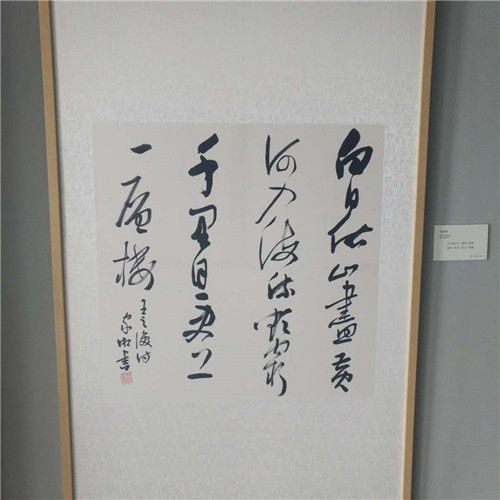 白日依山盡黃
河入海流欲窮
千里目更上
一層樓
王之渙詩
書